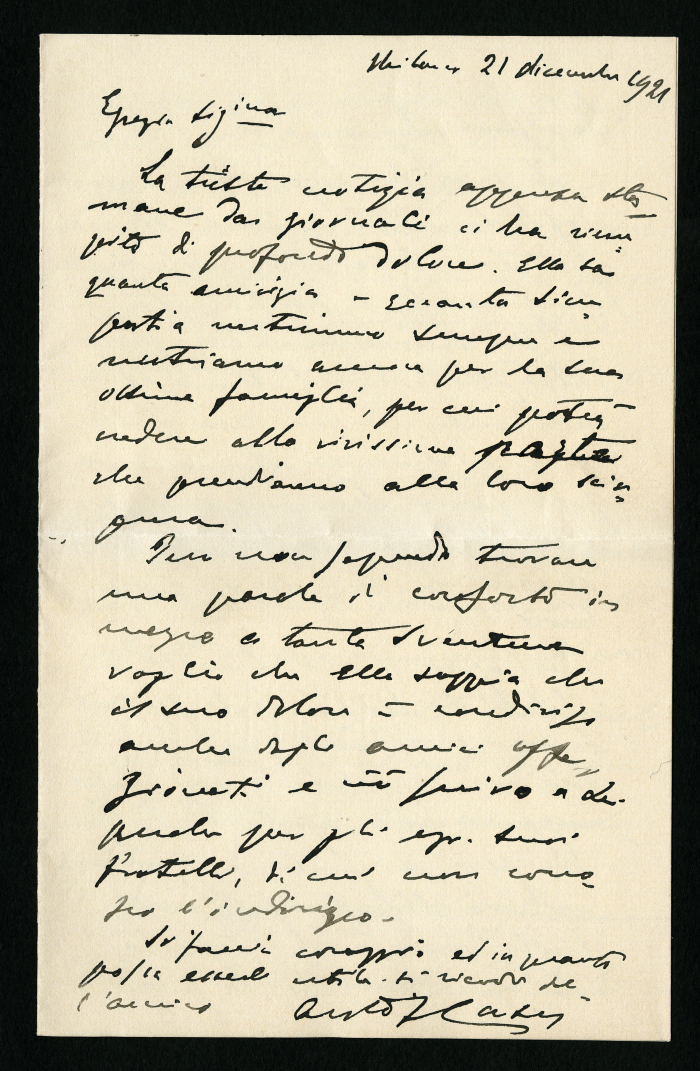 Milano 21 dicembre 1921
Egregia Sig.ina
La triste notizia appresa sta
mane dai giornali ci ha riem
pito di profondo dolore. Ella sa
quanta amicizia e quanta sim
patia nutrimmo sempre e
nutriamo ancora per la sua
ottima famiglia, per cui potrà
credere alla vivissima parte
che prendiamo alla loro scia
gura.
Pur non sapendo trovare
una parola di conforto in
mezzo a tanta sventura
voglio che Ella sappia che
il suo dolore è condiviso
anche dagli amici affe
zionati e ciò scrivo a Lei
anche per gli egr. suoi
fratelli, di cui non cono
sco l'indirizzo.
Si faccia coraggio ed in quanto
possa esserle utile si ricordi del
l'amico